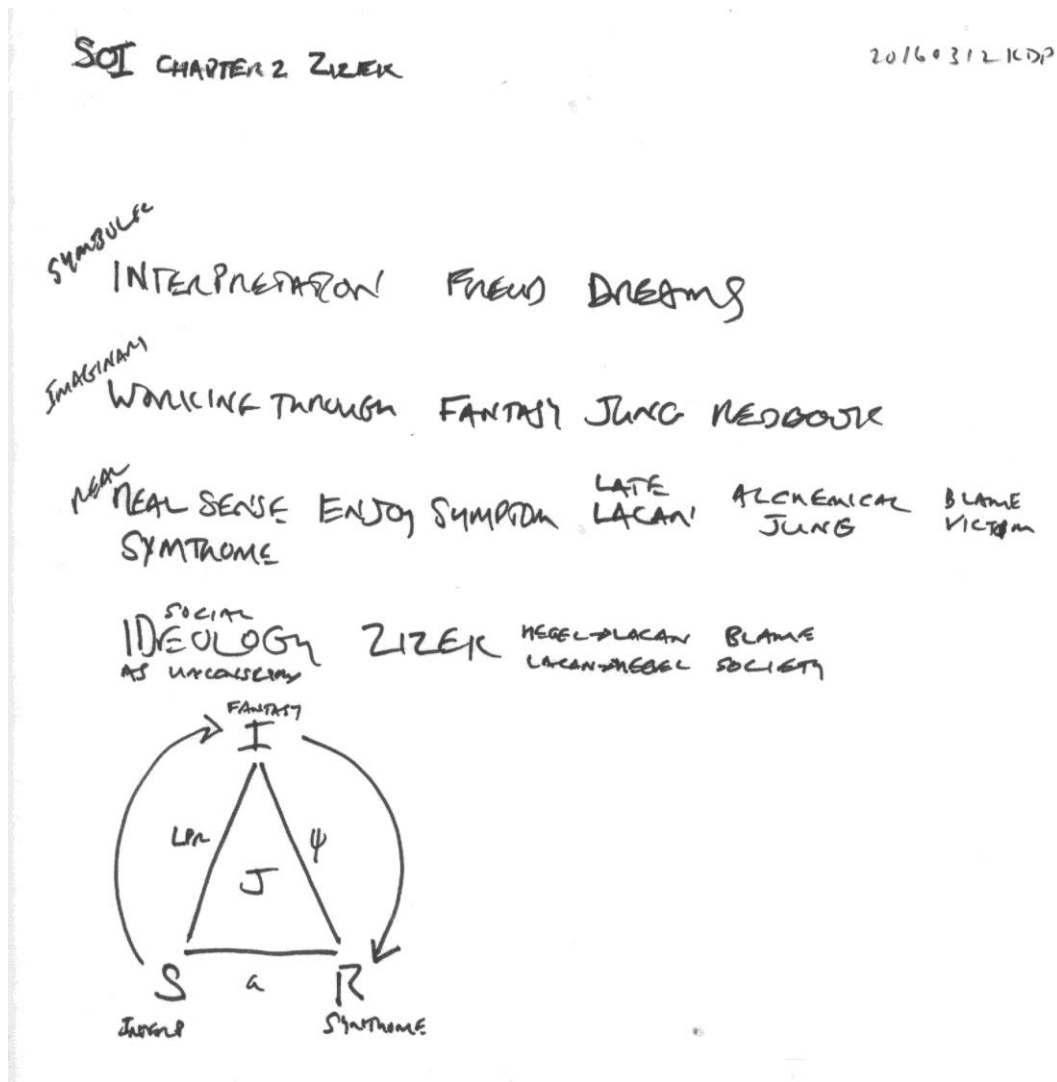 SOI CHAPTER 2 ZIZEK
20160312 KDP
SYMBOLIC
INTERPRETATION FREUD DREAMS
IMAGINARY
WORKING THROUGH FANTASY JUNG REDBOOK
REAL
REAL SENSE ENJOY SYMPTOM LATE LACAN ALCHEMICAL JUNG BLAME VICTIM
SYMTHOME
SOCIAL
IDEOLOGY ZIZEK HEGEL→LACAN BLAME
AS UNCONSCIOUS LACAN→HEGEL SOCIETY
FANTASY
I
ψ
J
S a R
INTERP SYNTHOME